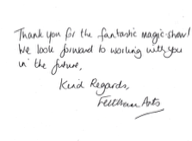 Thank you for the fantastic magic-show!
We look forward to working with you
in the future.
Kind Regards,
Feltham Arts